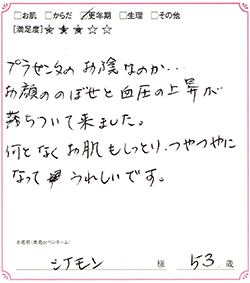 □お肌 □からだ ☑更年期 □生理 □その他
[満足度]★★★☆☆
プラセンタのお陰なのか…
お顔ののぼせと血圧の上昇が
落ちついて来ました。
何となくお肌もしっとり、つやつやに
なって うれしいです。
お名前(本名orペンネーム)
シナモン 様 53 歳